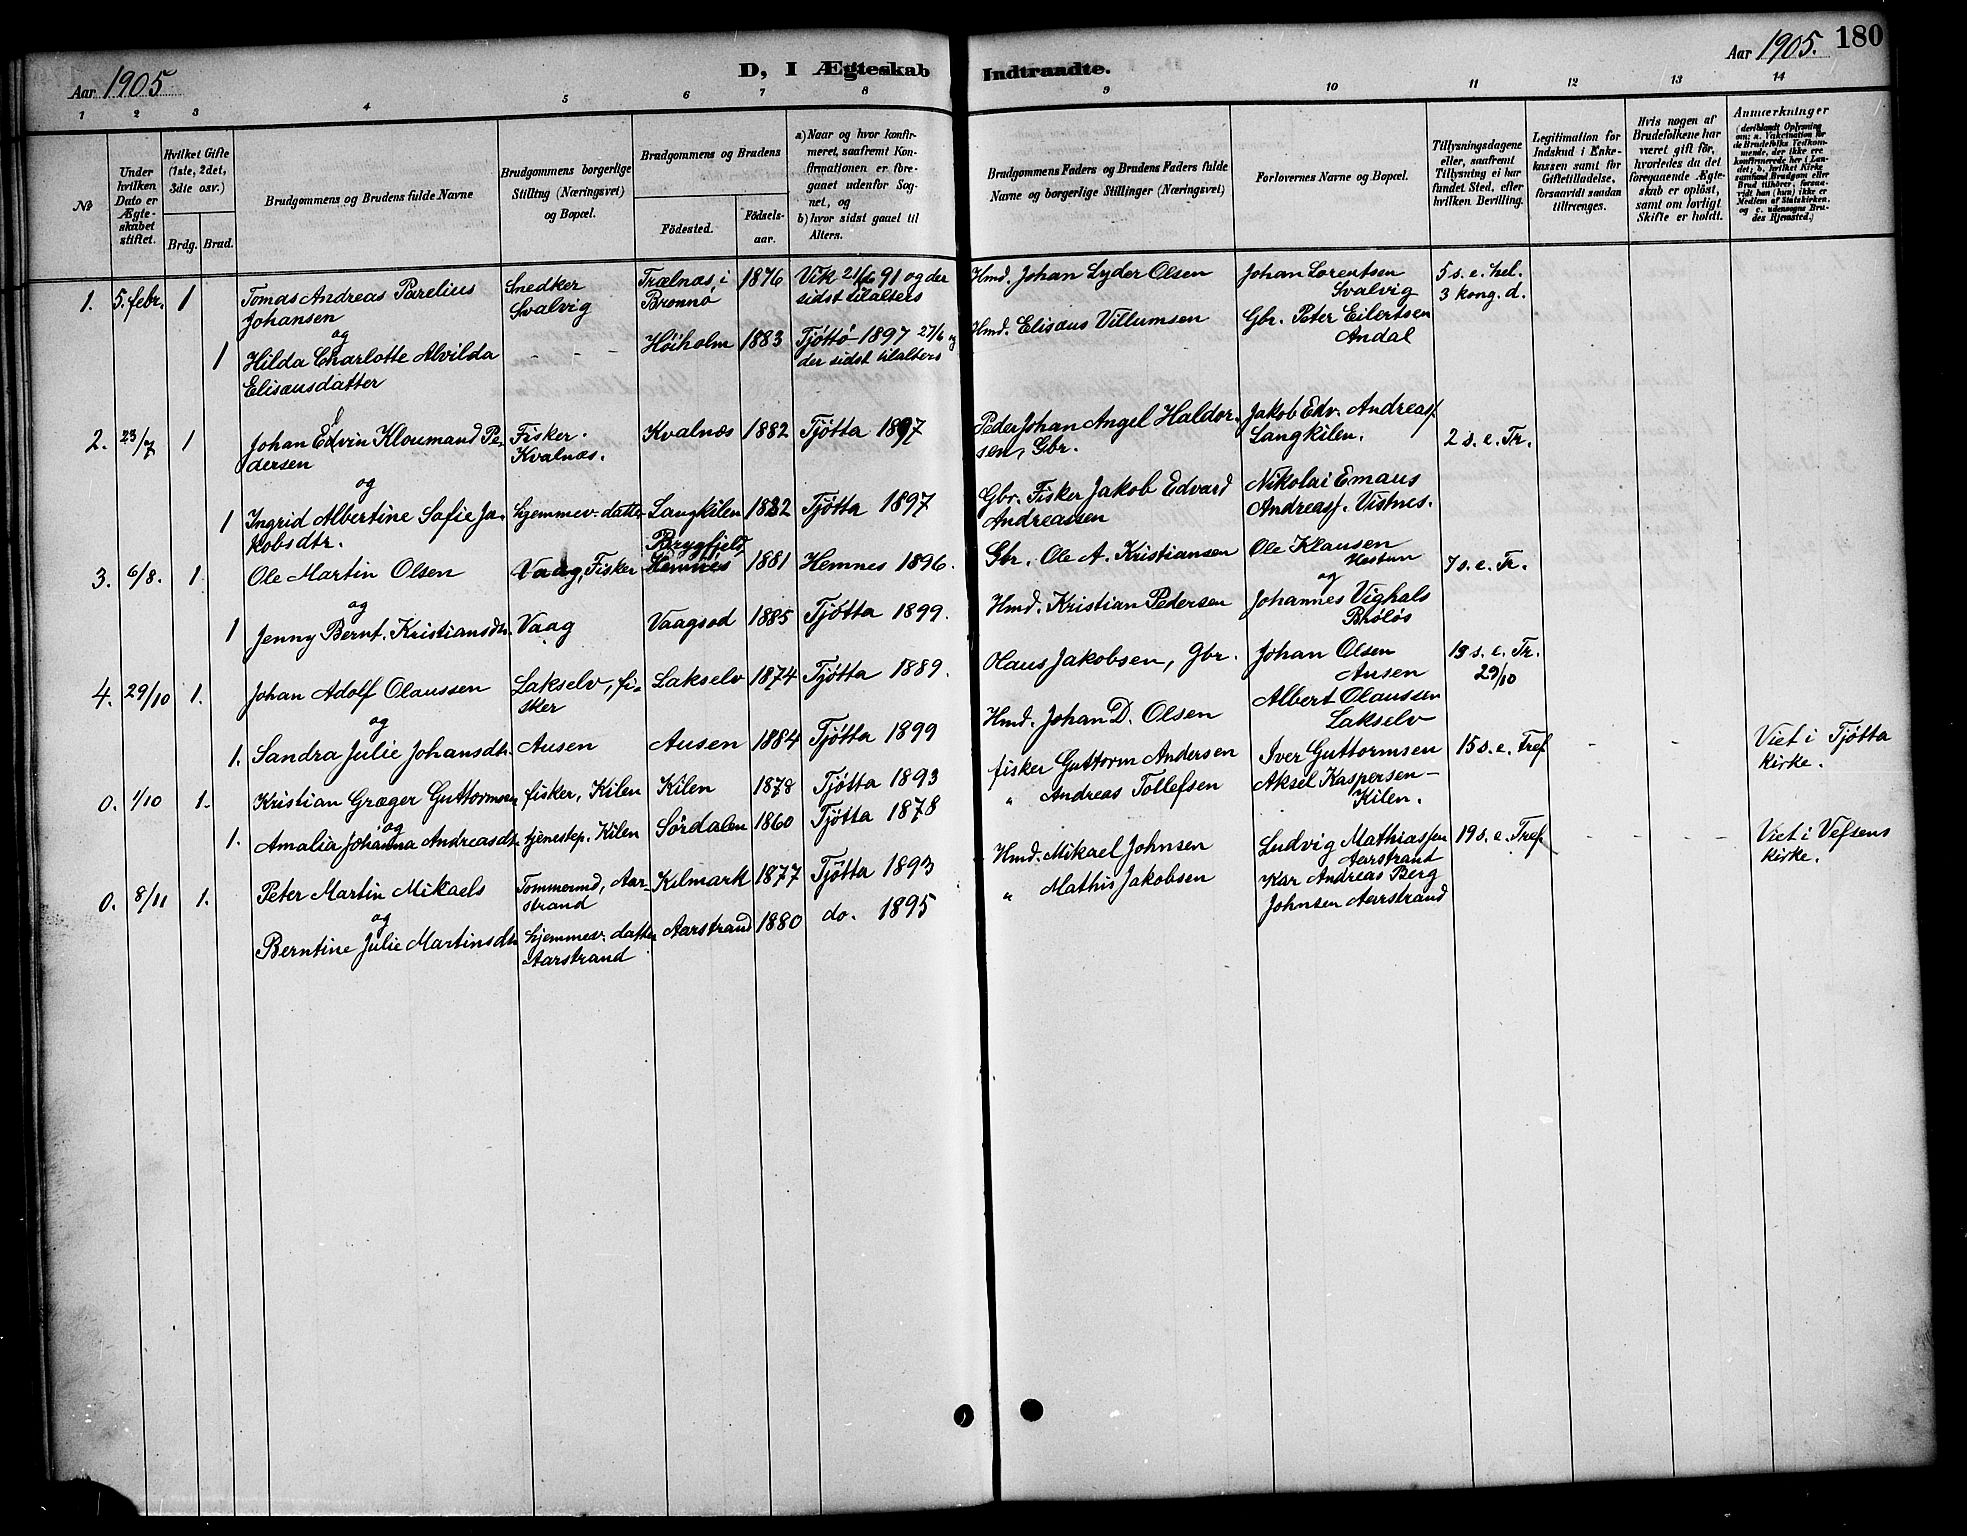 Aar 1905
D, I Ægteskab Indtraadte.
Aar 1905. 180
1 2 3 4 5 6 7 8 9 10 11 12 13 14
No
Under hvilken Dato er Ægteskabet stiftet.
Hvilket Gifte (1ste, 2det, 3die osv.)
Brdg. Brud.
Brudgommens og Brudens fulde Navne
Brudgommens borgerlige Stilling (Næringsvei) og Bopæl.
Brudgommens og Brudens
Födested.
Födsels-aar.
a) Naar og hvor konfir-
meret, saafremt Kon-
firmationen er fore-
gaaet udenfor Sog-
net, og
b) hvor sidst gaaet til
Alters.
Brudgommens Faders og Brudens Faders fulde
Navne og borgerlige Stillinger (Næringsvei)
Forlovernes Navne og Bopæl.
Tillysningsdagene
eller, saafremt
Tillysning ei har
fundet Sted, efter
hvilken Bevilling.
Legitimation for
Indskud i Enke-
kassen samt for
Giftetilladelse,
forsaavidt saadan
tiltrænges.
Hvis nogen af
Brudefolkene har
været gift för,
hvorledes da det
foregaaende Ægte-
skab er oplöst,
samt om lovligt
Skifte er holdt.
Anmærkninger
(deriblandt Oplysning
om: a. Vakcination for
de Brudefolks Vedkom-
mende, der ikke ere
konfirmerede her i Lan-
det; b. hvilket Kirke-
samfund Brudgom eller
Brud tilhörer, forsaa-
vidt han (hun) ikke er
Medlem af Statskirken,
og c. udensogns Bru-
des Hjemsted.)
1. 5. febr. 1 Tomas Andreas Parelius Snedker Trælnæs, i 1876 Vik 21/6 91 og der Hmd. Johan Lyder Olsen Johan Lorentsen 5 s. e. hel.
Johansen Svalvig Brønnø sidst tilalters Svalvig 3 kong. d.
og
1 Hilda Charlotte Alvilda - - - Høiholm 1883 Tjøttø 1897 27/6 og Hmd. Elisæus Villumsen Gbr. Peter Eilertsen
Elisæusdatter der sidst tilalters Andal
2. 23/7 1 Johan Edvin Kloumand Pe- Fisker. Kvalnæs 1882 Tjøtta 1897 Peder Johan Angel Haldor- Jakob Edv. Andreass. 2 s. e. Tr.
dersen Kvalnæs. sen, Gbr. Langkilen.
og
1 Ingrid Albertine Sofie Ja- hjemmev. datter Langkilen 1882 Tjøtta 1897 Gbr. Fisker Jakob Edvard Nikolai Emaus
kobsdtr. Andreassen Andreass. Vistnes.
3. 6/8. 1. Ole Martin Olsen Vaag, Fisker Brygfjeld, Hemnes 1881 Hemnes 1896. Gbr. Ole A. Kristiansen Ole Klausen 7 s. e. Tr.
Hestun
og og
1 Jenny Bernt. Kristiansdtr. Vaag Vaagsod 1885 Tjøtta 1899. Hmd. Kristian Pedersen Johannes Vighals
4. 29/10 1. Johan Adolf Olaussen Lakselv, fi- Lakselv 1874 Tjøtta 1889. Olaus Jakobsen, Gbr. Johan Olsen 19 s. e. Tr.
sker Ausen 29/10
og
1. Sandra Julie Johansdtr. Ausen Ausen 1884 Tjøtta 1899 Hmd. Johan D. Olsen Albert Olaussen
Lakselv
0. 1/10 1. Kristian Græger Guttormsen fisker, Kilen Kilen 1878 Tjøtta 1893 fisker Guttorm Andersen Iver Guttormsen 15 s. e. Tref. - - Viet i Tjøtta
kirke.
og
1. Amalia Johanna Andreasdtr. tjenestep. Kilen Sørdalen 1860 Tjøtta 1878 " Andreas Tollefsen Aksel Kaspersen -
Kilen.
0. 8/11 1. Peter Martin Mikaels Tømmermd, Aar- Kilmark 1877 Tjøtta 1893 Hmd. Mikael Johnsen Ludvig Mathiassen 19 s. e. Tref. - - - - Viet i Vefsens
strand Aarstrand kirke.
og
Berntine Julie Martinsdtr. hjemmev. datter Aarstrand 1880 do. 1895 " Mathis Jakobsen Kar Andreas Berg
Aarstrand Johnsen Aarstrand